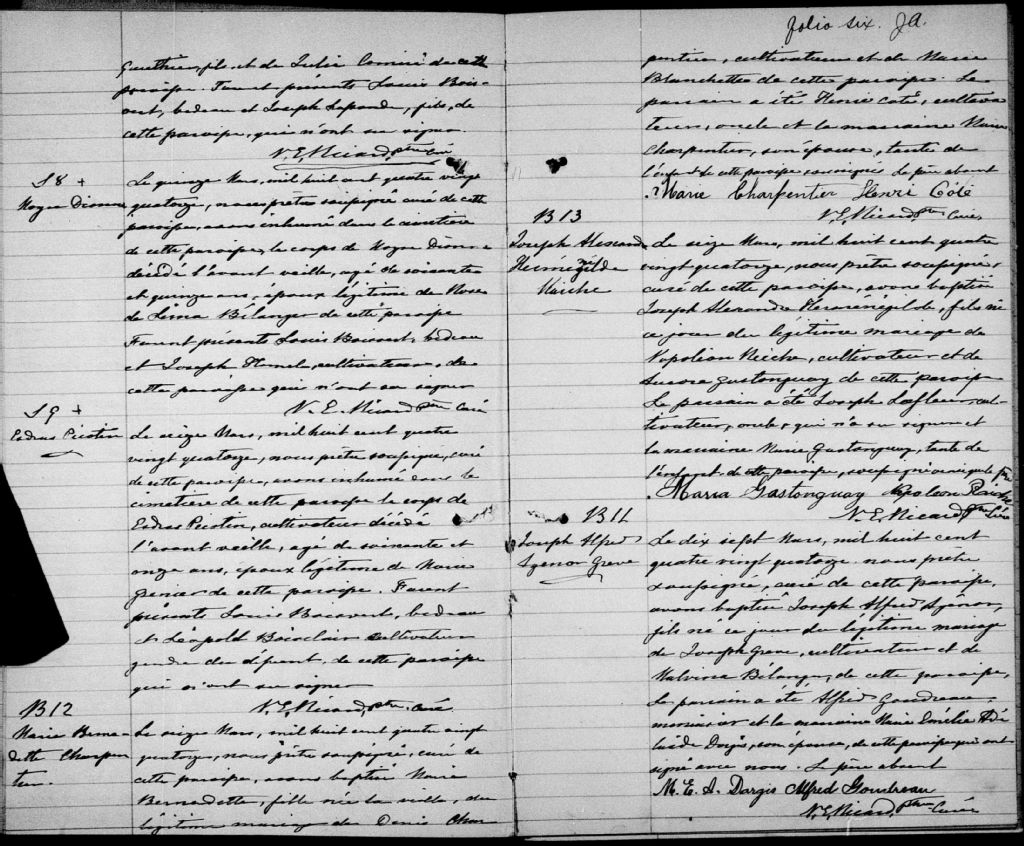 Gauthier, fils et de Julie Comiré de cette
paroisse. Furent présents Louis Bois-
vert, bedeau et Joseph Laponde, fils, de
cette paroisse, qui n'ont su signer.
N. E. Ricard, ptre Curé
S 8 +
Moyse Dionne
Le quinze Mars, mil huit cent quatre vingt
quatorze, nous prêtre soussigné curé de cette
paroisse, avons inhumé dans le cimetière
de cette paroisse, le corps de Moyse Dionne
décédé l'avant veille, agé de soixante
et quinze ans, époux légitime de Rose
de Lima Bélanger de cette paroisse
Furent présents Louis Boisvert, bedeau
et Joseph Hamel, cultivateur, de
cette paroisse qui n'ont su signer
N. E. Ricard ptre Curé
S 9 +
Esdras Picotin
Le seize Mars, mil huit cent quatre
vingt quatorze, nous prêtre soussigné, curé
de cette paroisse, avons inhumé dans le
cimetière de cette paroisse le corps de
Esdras Picotin, cultivateur décédé
l'avant veille, agé de soixante et
onze ans, époux légitime de Marie
Grenier de cette paroisse. Furent
présents Louis Boisvert, bedeau
et Léopold Boisclair cultivateur
gendre du défunt, de cette paroisse
qui n'ont su signer
N. E. Ricard, ptre Curé
B 12
Marie Berna-
dette Charpen
tier.
Le seize Mars, mil huit cent quatre vingt
quatorze, nous prêtre soussigné, curé de
cette paroisse, avons baptisé Marie
Bernadette, fille née la veille, du
légitime mariage de Denis Char
folio six. J A.
pentier, cultivateur et de Marie
Blanchette de cette paroisse. Le
parrain a été Henri Coté, cultiva
teur, oncle et la marraine Marie
Charpentier, son épouse, tante de
l'enfant de cette paroisse soussignés. Le père absent
Marie Charpentier Henri Côté
N. E. Ricard, ptre Curé
B 13
Joseph Alexandre
Herménégilde
Raiche
Le seize Mars, mil huit cent quatre
vingt quatorze, nous prêtre soussigné,
curé de cette paroisse, avons baptisé
Joseph Alexandre Herménégilde, fils né
ce jour du légitime mariage de
Napoléon Raiche, cultivateur et de
Aurore Gastonguay de cette paroisse
Le parrain a été Joseph Lafleur, cul-
tivateur, oncle, qui n'a su signer et
la marraine Marie Gastonguay, tante de
l'enfant, de cette paroisse, soussignée ainsi que le père
Maria Gastonguay Napoleon Raiche
N. E. Ricard ptre Curé
B 14
Joseph Alfred
Agenor Greve
Le dix sept Mars, mil huit cent
quatre vingt quatorze nous prêtre
soussigné, curé de cette paroisse,
avons baptisé Joseph Alfred Agénor,
fils né ce jour du légitime mariage
de Joseph Greve, cultivateur et de
Malvina Bélanger, de cette paroisse,
Le parrain a été Alfred Goudreau,
menuisier et la marraine Marie Emélie Adé
laide Dargis, son épouse, de cette paroisse qui ont
signé avec nous. Le père absent
M. E. A. Dargis Alfred Goudreau
N. E. Ricard, ptre Curé